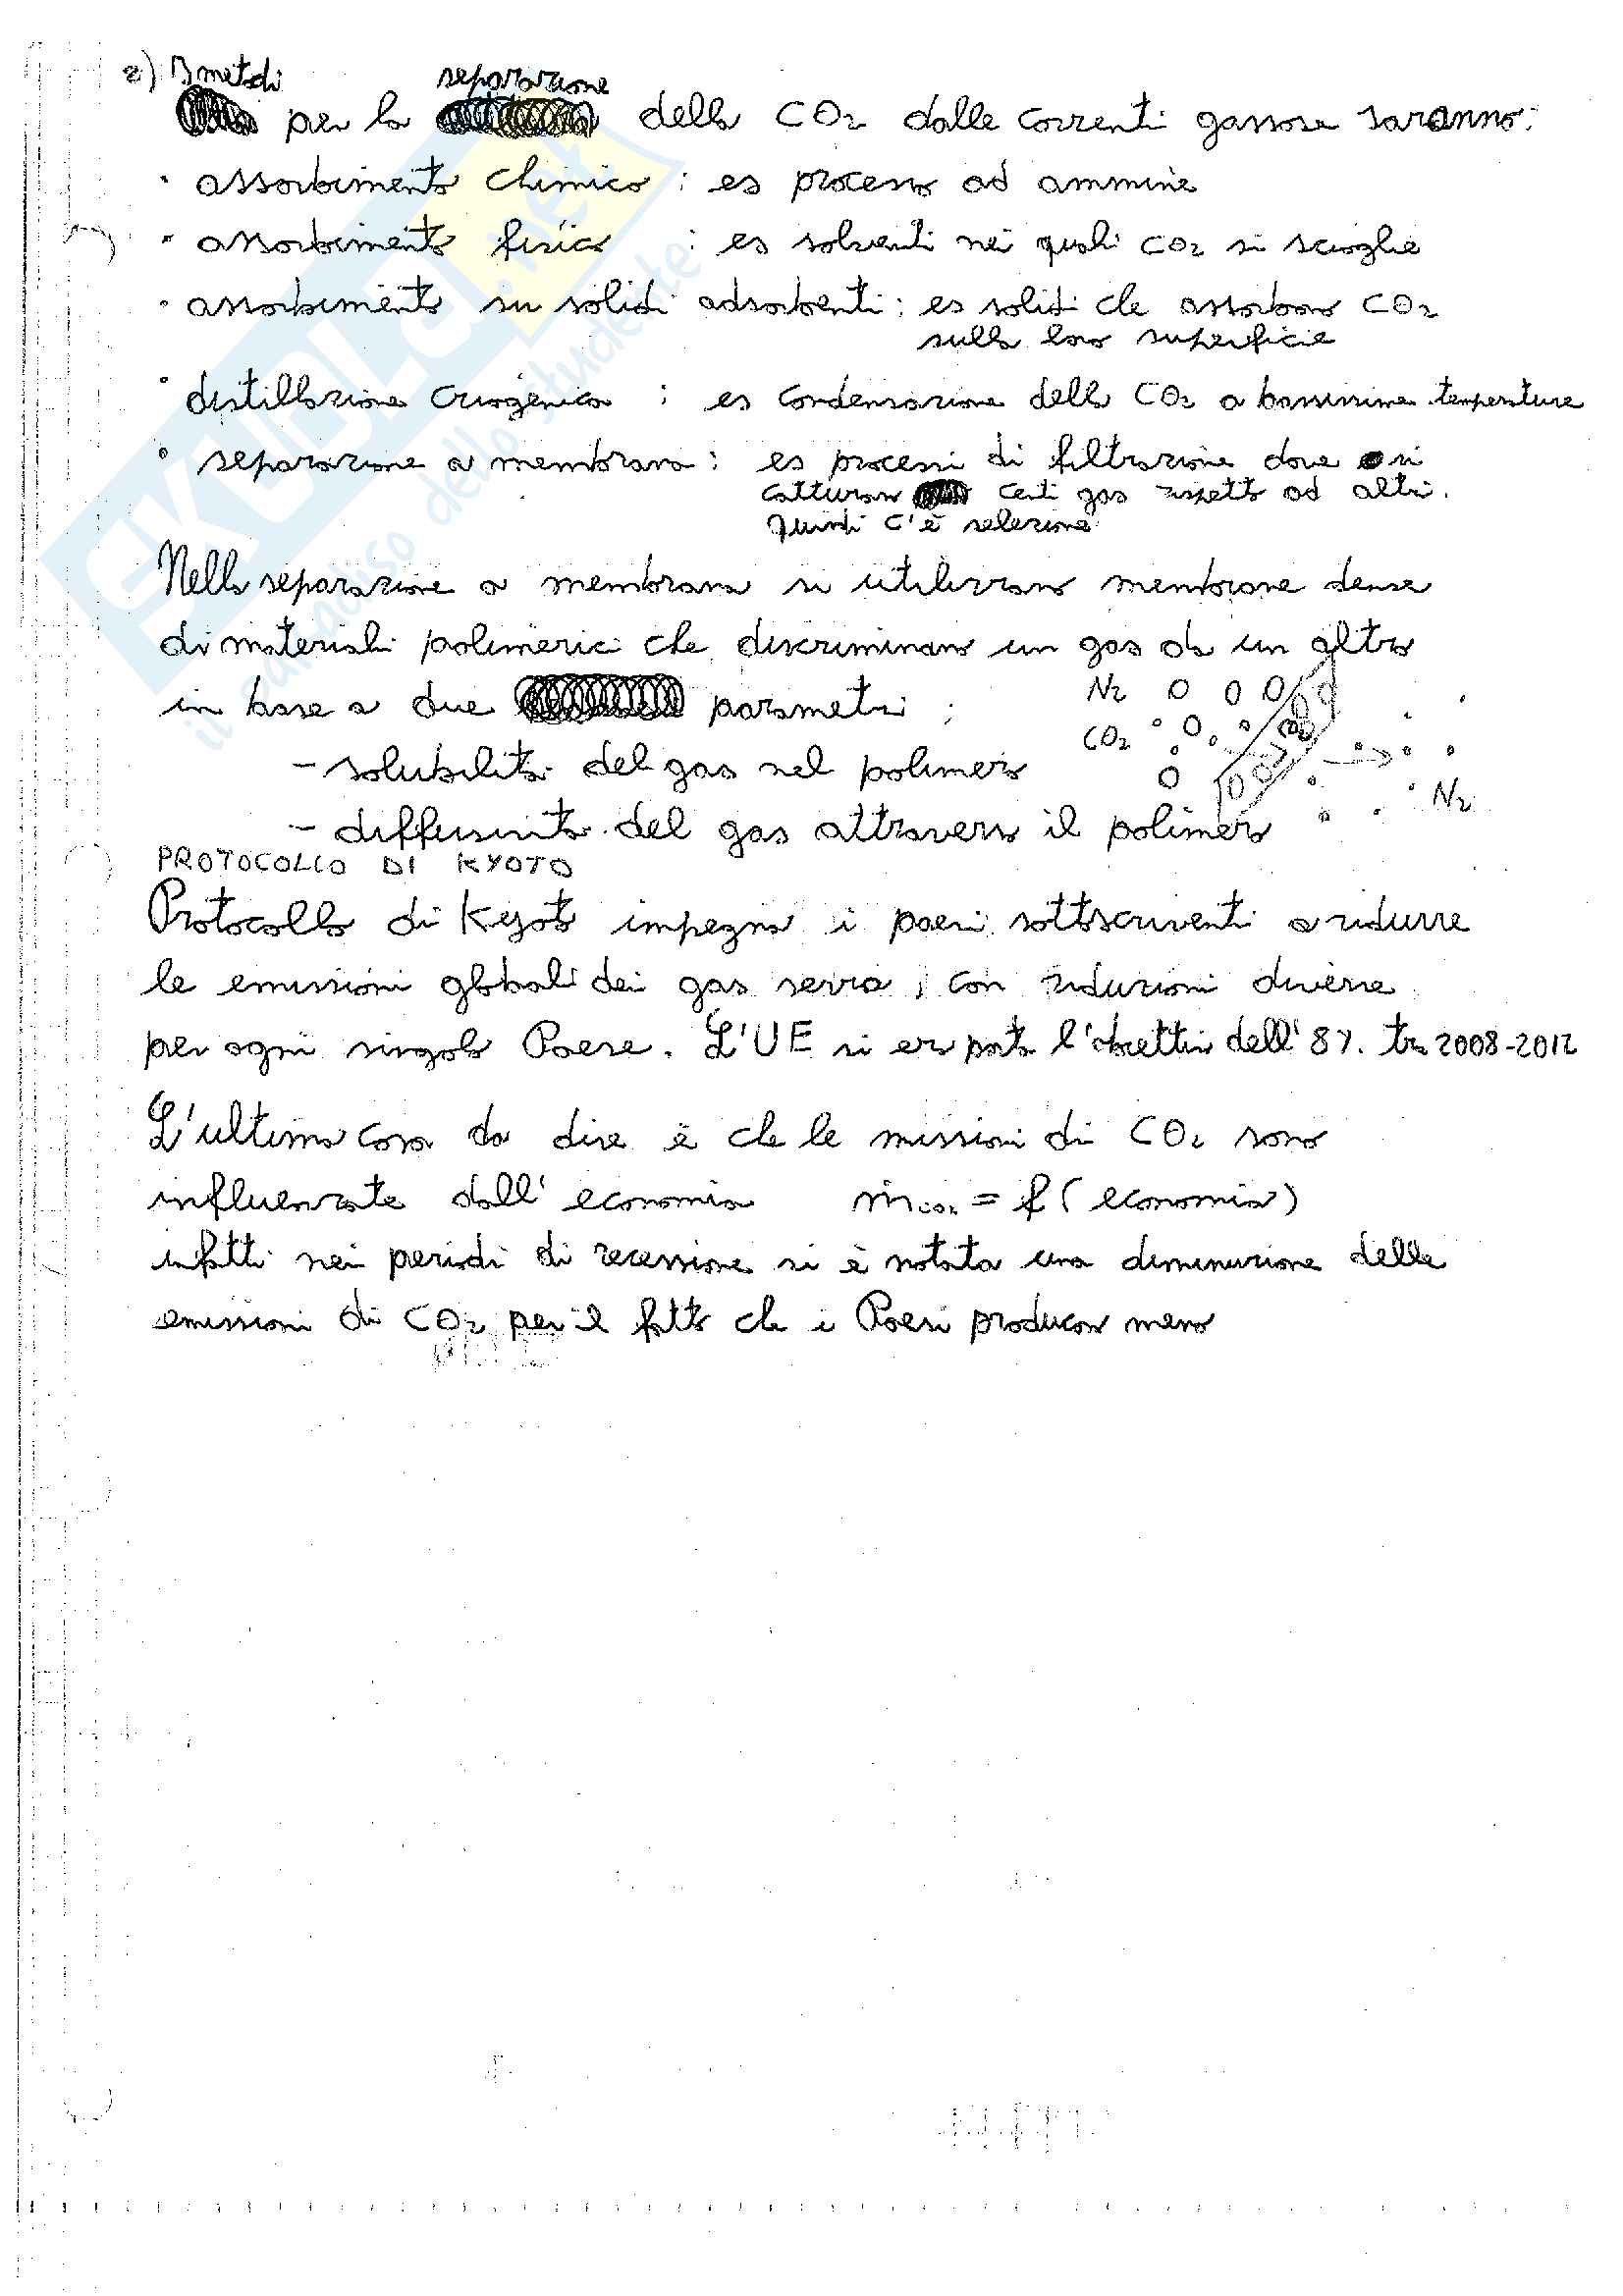 2) I metodi separazione
per la della CO2 dalle correnti gassose saranno:
• assorbimento chimico : es processo ad ammine
• assorbimento fisico : es solventi nei quali CO2 si scioglie
• assorbimento su solidi adsorbenti : es solidi che assorbono CO2
sulla loro superficie
• distillazione criogenica : es condensazione della CO2 a bassissime temperature
• separazione a membrana : es processi di filtrazione dove si
catturano certi gas rispetto ad altri.
Quindi c'è selezione
Nella separazione a membrana si utilizzano membrane dense
di materiali polimerici che discriminano un gas da un altro
in base a due parametri :
N2
CO2
- solubilità del gas nel polimero
N2
- diffusività del gas attraverso il polimero
PROTOCOLLO DI KYOTO
Protocollo di Kyoto impegna i paesi sottoscriventi a ridurre
le emissioni globali dei gas serra, con riduzioni diverse
per ogni singolo Paese. L'UE si era posta l'obiettivo dell'8% tra 2008-2012
L'ultima cosa da dire è che le missioni di CO2 sono
influenzate dall'economia ṁCO2 = f (economia)
infatti nei periodi di recessione si è notata una diminuzione delle
emissioni di CO2 per il fatto che i Paesi producono meno
il paradiso dello studente